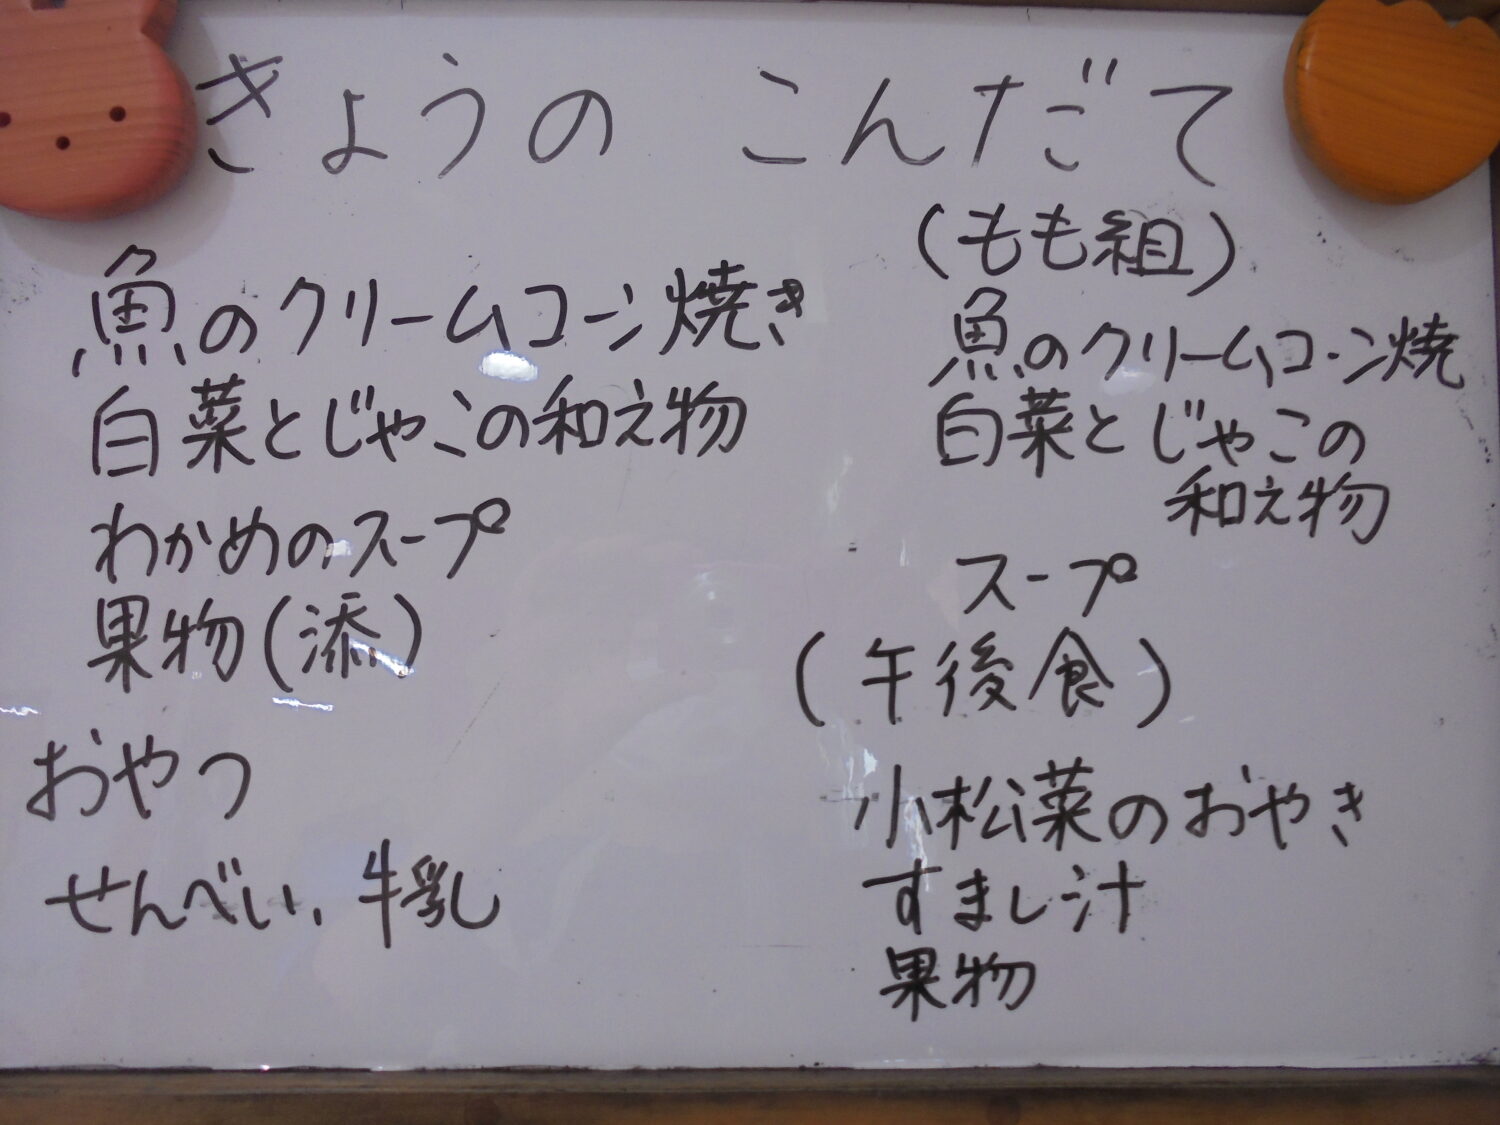 きょうの こんだて
魚のクリームコーン焼き
白菜とじゃこの和え物
わかめのスープ
果物(添)
おやつ
せんべい、牛乳
(もも組)
魚のクリームコーン焼
白菜とじゃこの
和え物
スープ
(午後食)
小松菜のおやき
すまし汁
果物